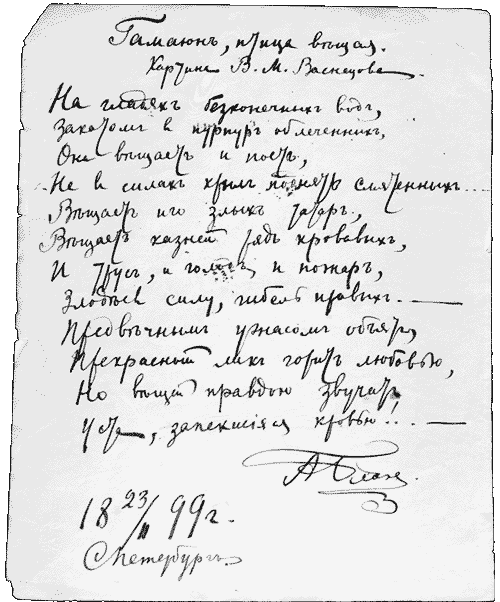 Гамаюнъ, птица вѣщая.
Картина В. М. Васнецова.
На гладяхъ безконечныхъ водъ,
Закатомъ в пурпуръ облеченныхъ,
Она вѣщаетъ и поетъ,
Не в силахъ крыл поднять смятенныхъ...
Вѣщаетъ иго злыхъ татаръ,
Вѣщаетъ казней рядъ кровавыхъ,
И трусъ, и голодъ, и пожаръ,
Злодѣев силу, гибель правыхъ. —
Предвѣчнымъ ужасомъ объятъ,
Прекрасный ликъ горитъ любовью,
Но вѣщей правдою звучатъ
Уста, запекшіяся кровью!.. —
А Блокъ.
18 23/II 99 г.
С Петербургъ.